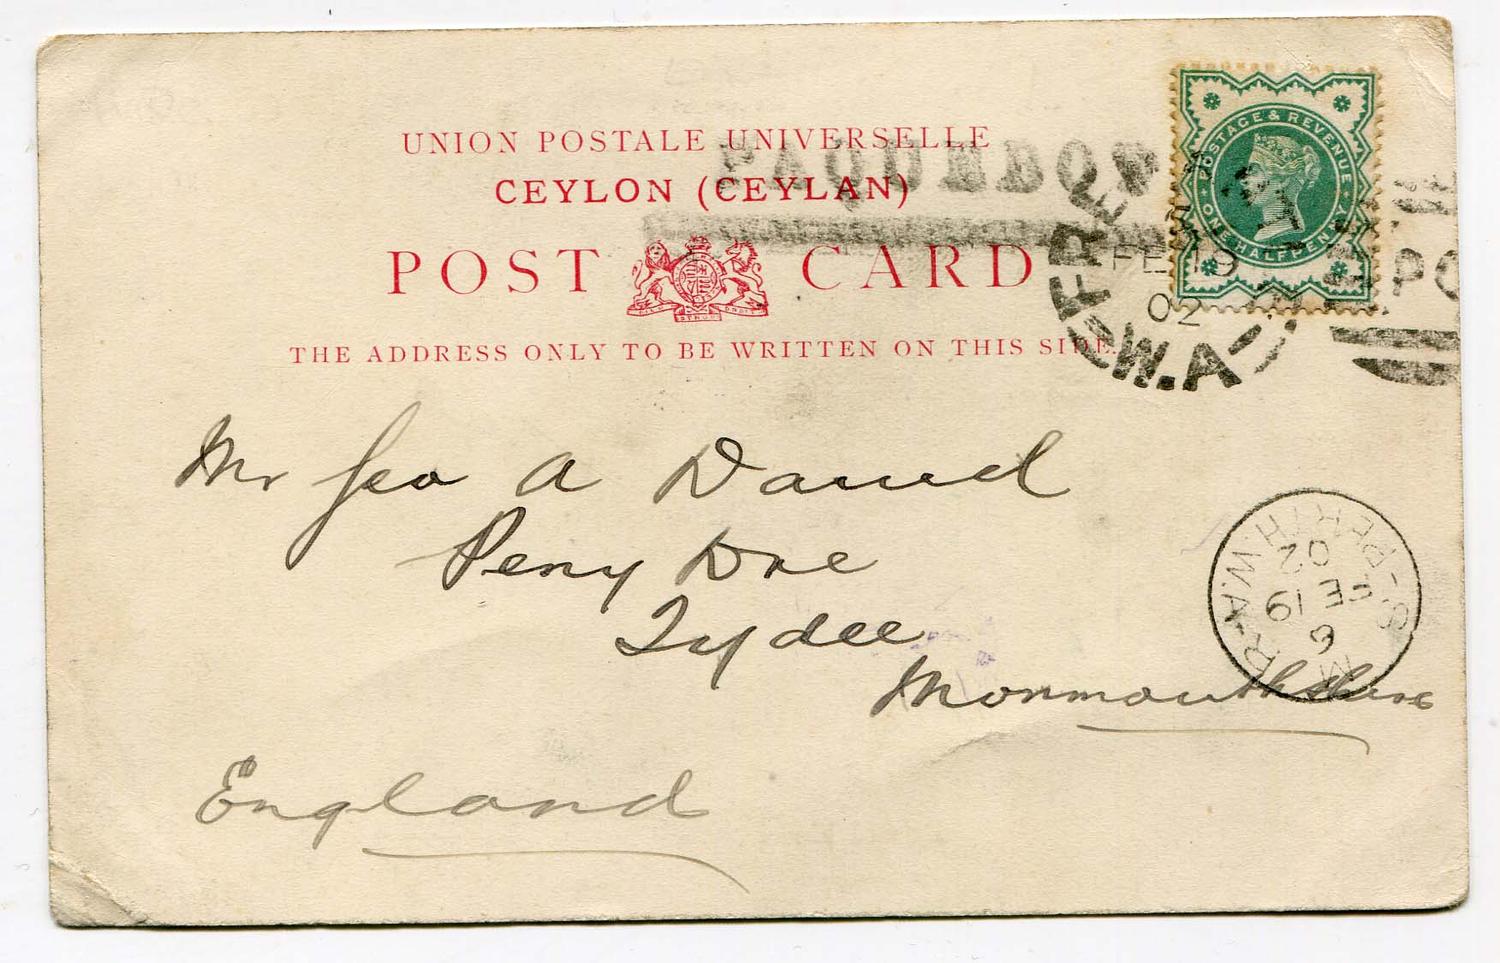 UNION POSTALE UNIVERSELLE
CEYLON (CEYLAN)
POST CARD
THE ADDRESS ONLY TO BE WRITTEN ON THIS SIDE.
PAQUEBOT
POSTAGE & REVENUE
ONE HALFPENNY
FRE
FE 19
02
W.A
PO
Mr Geo A Daniel
Peny Dre
Tydee
Monmouthshire
England
M.R-S.-PERTH.W.A
6
FE 19
02